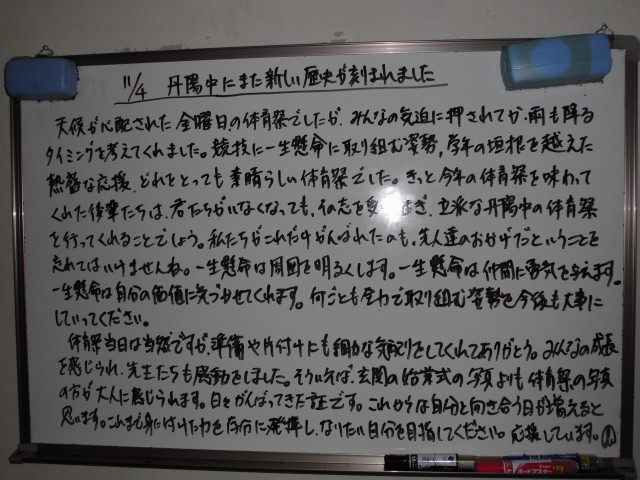 11/4 丹陽中にまた新しい歴史が刻まれました
天候が心配された金曜日の体育祭でしたが、みんなの気迫に押されてか、雨も降る
タイミングを考えてくれました。競技に一生懸命に取り組む姿勢、学年の垣根を越えた
熱い応援、どれをとっても素晴らしい体育祭でした。きっと今年の体育祭を味わって
くれた後輩たちは、君たちがいなくなっても、その志を受け継ぎ、立派な丹陽中の体育祭
を行ってくれることでしょう。私たちがこれだけがんばれたのも、先人達のおかげだということを
忘れてはいけませんね。一生懸命は周囲を明るくします。一生懸命は仲間に勇気を与えます。
一生懸命は自分の価値に気づかせてくれます。何ごとも全力で取り組む姿勢を今後も大事に
していってください。
体育祭当日は当然ですが、準備や片付けにも細かな気配りをしてくれてありがとう。みんなの成長
を感じられ、先生たちも感動をしました。そういえば、玄関の始業式の写真よりも体育祭の写真
の方が大人に感じられます。日々がんばってきた証です。これからは自分と向き合う日が増えると
思います。これまで身に付けた力を存分に発揮し、なりたい自分を目指してください。応援しています。
ボードマスター